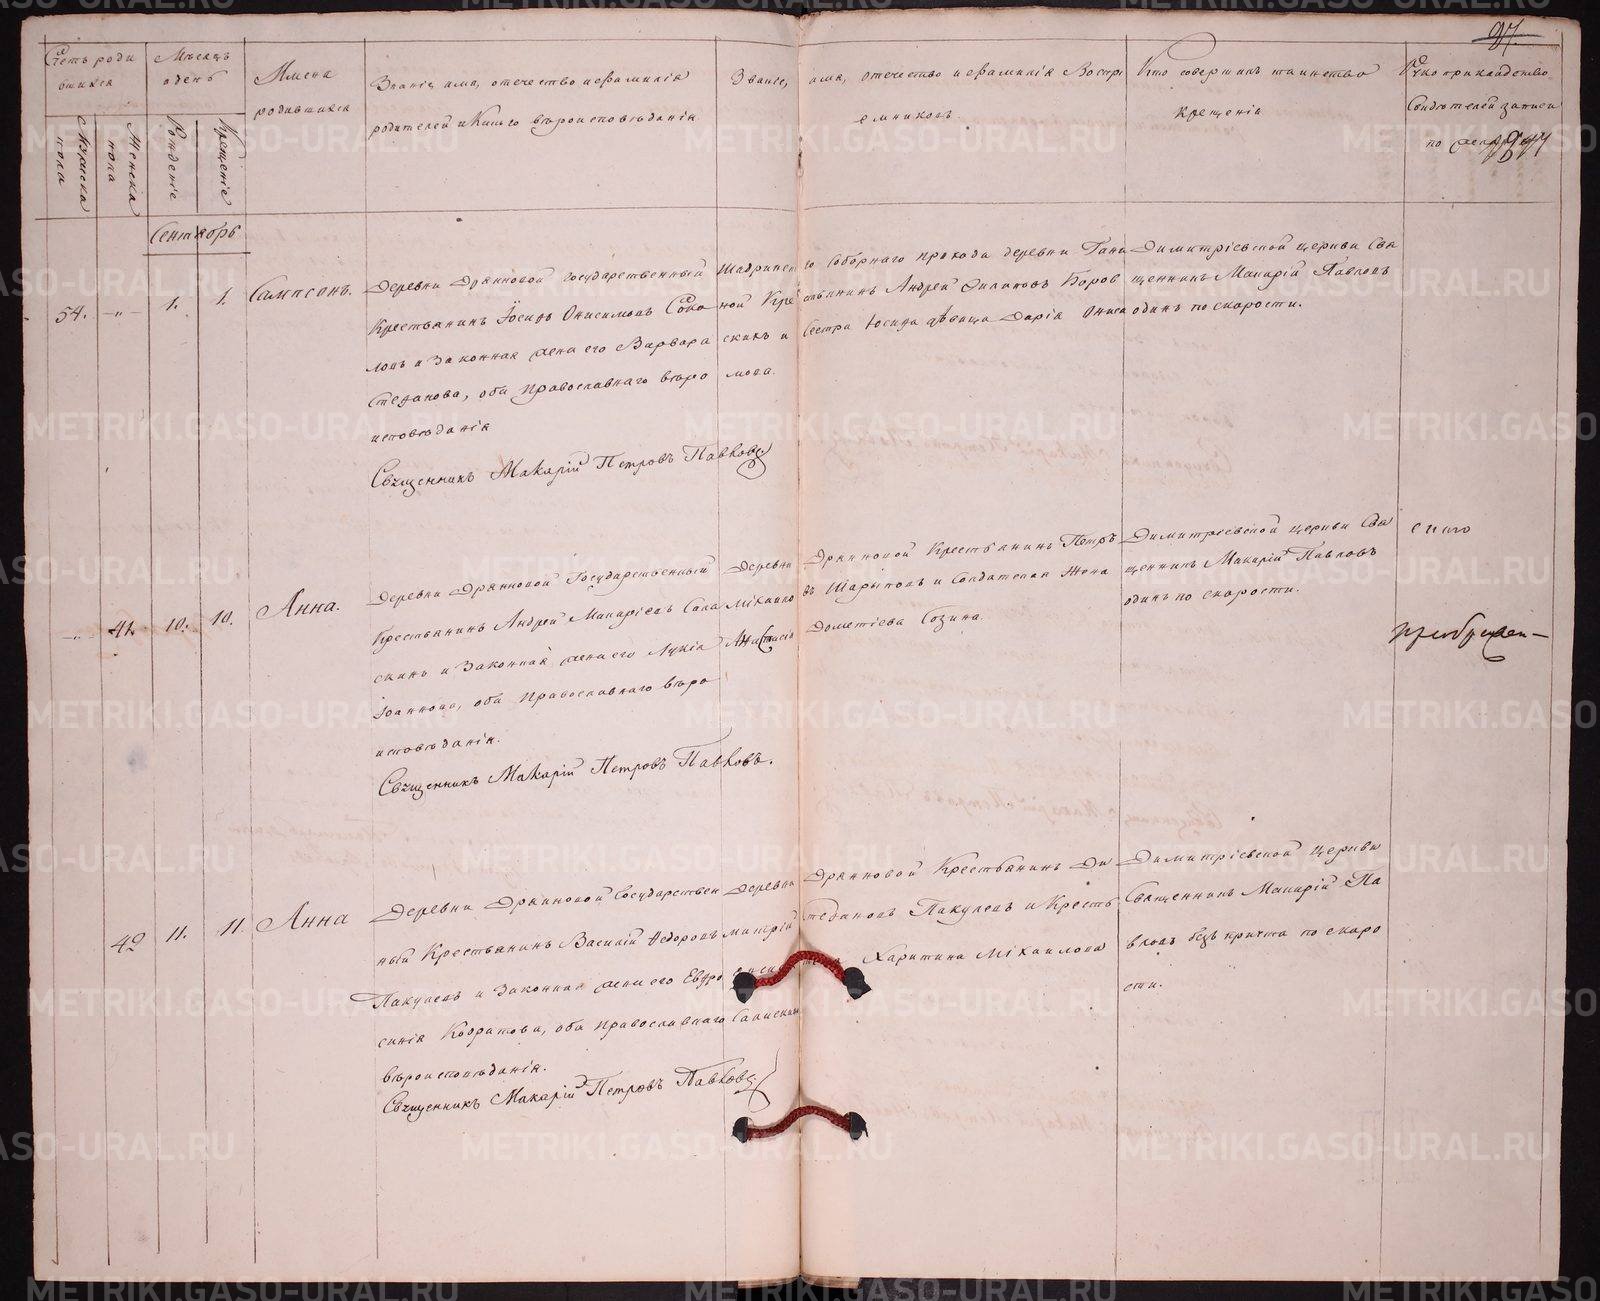 97.
Счетъ роди
вшихся
Мужеска пола
Женска пола
Мѣсяцъ
и день
Рожденіе
Крещеніе
Имена
родившихся
Званіе, имя, отечество и фамилія
родителей и какого вѣроисповѣданія
Званіе, имя, отечество и фамилія Воспрі
емниковъ
Кто совершилъ таинство
крещенія
Рукоприкладство
Свидѣтелей записи
по
Сентябрь
54.
1.
1.
Сампсонъ.
Деревни Дрянновой Государственный
Крестьянинъ Іосифъ Онисимовъ Соко
ловъ и Законная жена его Варвара
Стефанова, оба православнаго вѣро
исповѣданія
Священникъ Макарій Петровъ Павловъ
Шадринскаго Соборнаго прихода деревни
Крестьянинъ Андрей Филиповъ Боров
скихъ и Сестра Іосифа дѣвица Дарія Ониси
мова.
Димитріевской церкви Свя
щенникъ Макарій Павловъ
одинъ по скорости.
41.
10.
10.
Анна.
Деревни Дрянновой Государственный
Крестьянинъ Андрей Макаріевъ
и Законная жена его Лукія
Іоаннова, оба православнаго вѣро
исповѣданія.
Священникъ Макарій Петровъ Павловъ.
Деревни Дрянновой Крестьянинъ Петръ
Михайловъ Шарыповъ и Солдатская Жена
Анастасія Дометіева Созина.
Димитріевской церкви Свя
щенникъ Макарій Павловъ
одинъ по скорости.
42
11.
11
Анна
Деревни Дрянновой Государствен
ный Крестьянинъ Василій Ѳедоровъ
Пакулевъ и Законная жена его Евфро
синія Кодратова, оба православнаго
вѣроисповѣданія.
Священникъ Макарій Петровъ Павловъ
Деревни Дрянновой Крестьянинъ Ди
митрій Стефановъ Пакулевъ и Кресть
Харитина Михаилова
Димитріевской церкви
Священникъ Макарій Па
вловъ безъ причта по скоро
сти.
METRIKI.GASO-URAL.RU